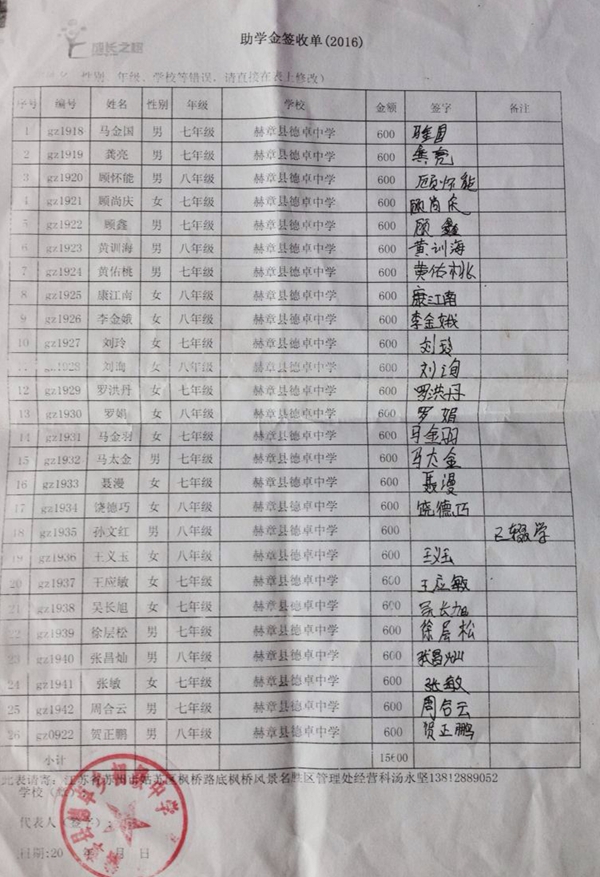 成长之路
助学金签收单(2016)
性别、年级、学校等错误，请直接在表上修改）
序号 编号 姓名 性别 年级 学校 金额 签字 备注
1 gz1918 马金国 男 七年级 赫章县德卓中学 600 马金国
2 gz1919 龚亮 男 七年级 赫章县德卓中学 600 龚亮
3 gz1920 顾怀能 男 八年级 赫章县德卓中学 600 顾怀能
4 gz1921 顾尚庆 女 七年级 赫章县德卓中学 600 顾尚庆
5 gz1922 顾鑫 男 七年级 赫章县德卓中学 600 顾鑫
6 gz1923 黄训海 男 八年级 赫章县德卓中学 600 黄训海
7 gz1924 黄佑桃 男 七年级 赫章县德卓中学 600 黄佑桃
8 gz1925 康江南 女 八年级 赫章县德卓中学 600 康江南
9 gz1926 李金娥 女 八年级 赫章县德卓中学 600 李金娥
10 gz1927 刘玲 女 七年级 赫章县德卓中学 600 刘玲
11 gz1928 刘询 女 八年级 赫章县德卓中学 600 刘询
12 gz1929 罗洪丹 女 七年级 赫章县德卓中学 600 罗洪丹
13 gz1930 罗娟 女 八年级 赫章县德卓中学 600 罗娟
14 gz1931 马金羽 女 七年级 赫章县德卓中学 600 马金羽
15 gz1932 马太金 男 七年级 赫章县德卓中学 600 马太金
16 gz1933 聂漫 女 七年级 赫章县德卓中学 600 聂漫
17 gz1934 饶德巧 女 八年级 赫章县德卓中学 600 饶德巧
18 gz1935 孙文红 男 八年级 赫章县德卓中学 600 已辍学
19 gz1936 王义玉 女 八年级 赫章县德卓中学 600 王义玉
20 gz1937 王应敏 女 七年级 赫章县德卓中学 600 王应敏
21 gz1938 吴长旭 女 七年级 赫章县德卓中学 600 吴长旭
22 gz1939 徐层松 男 七年级 赫章县德卓中学 600 徐层松
23 gz1940 张昌灿 男 八年级 赫章县德卓中学 600 张昌灿
24 gz1941 张敏 女 七年级 赫章县德卓中学 600 张敏
25 gz1942 周合云 男 七年级 赫章县德卓中学 600 周合云
26 gz0922 贺正鹏 男 八年级 赫章县德卓中学 600 贺正鹏
小计 15600
此表请寄：江苏省苏州市姑苏区枫桥路底枫桥风景名胜区管理处经营科汤永坚13812889052
学校
代表人
日期:20 年 月 日